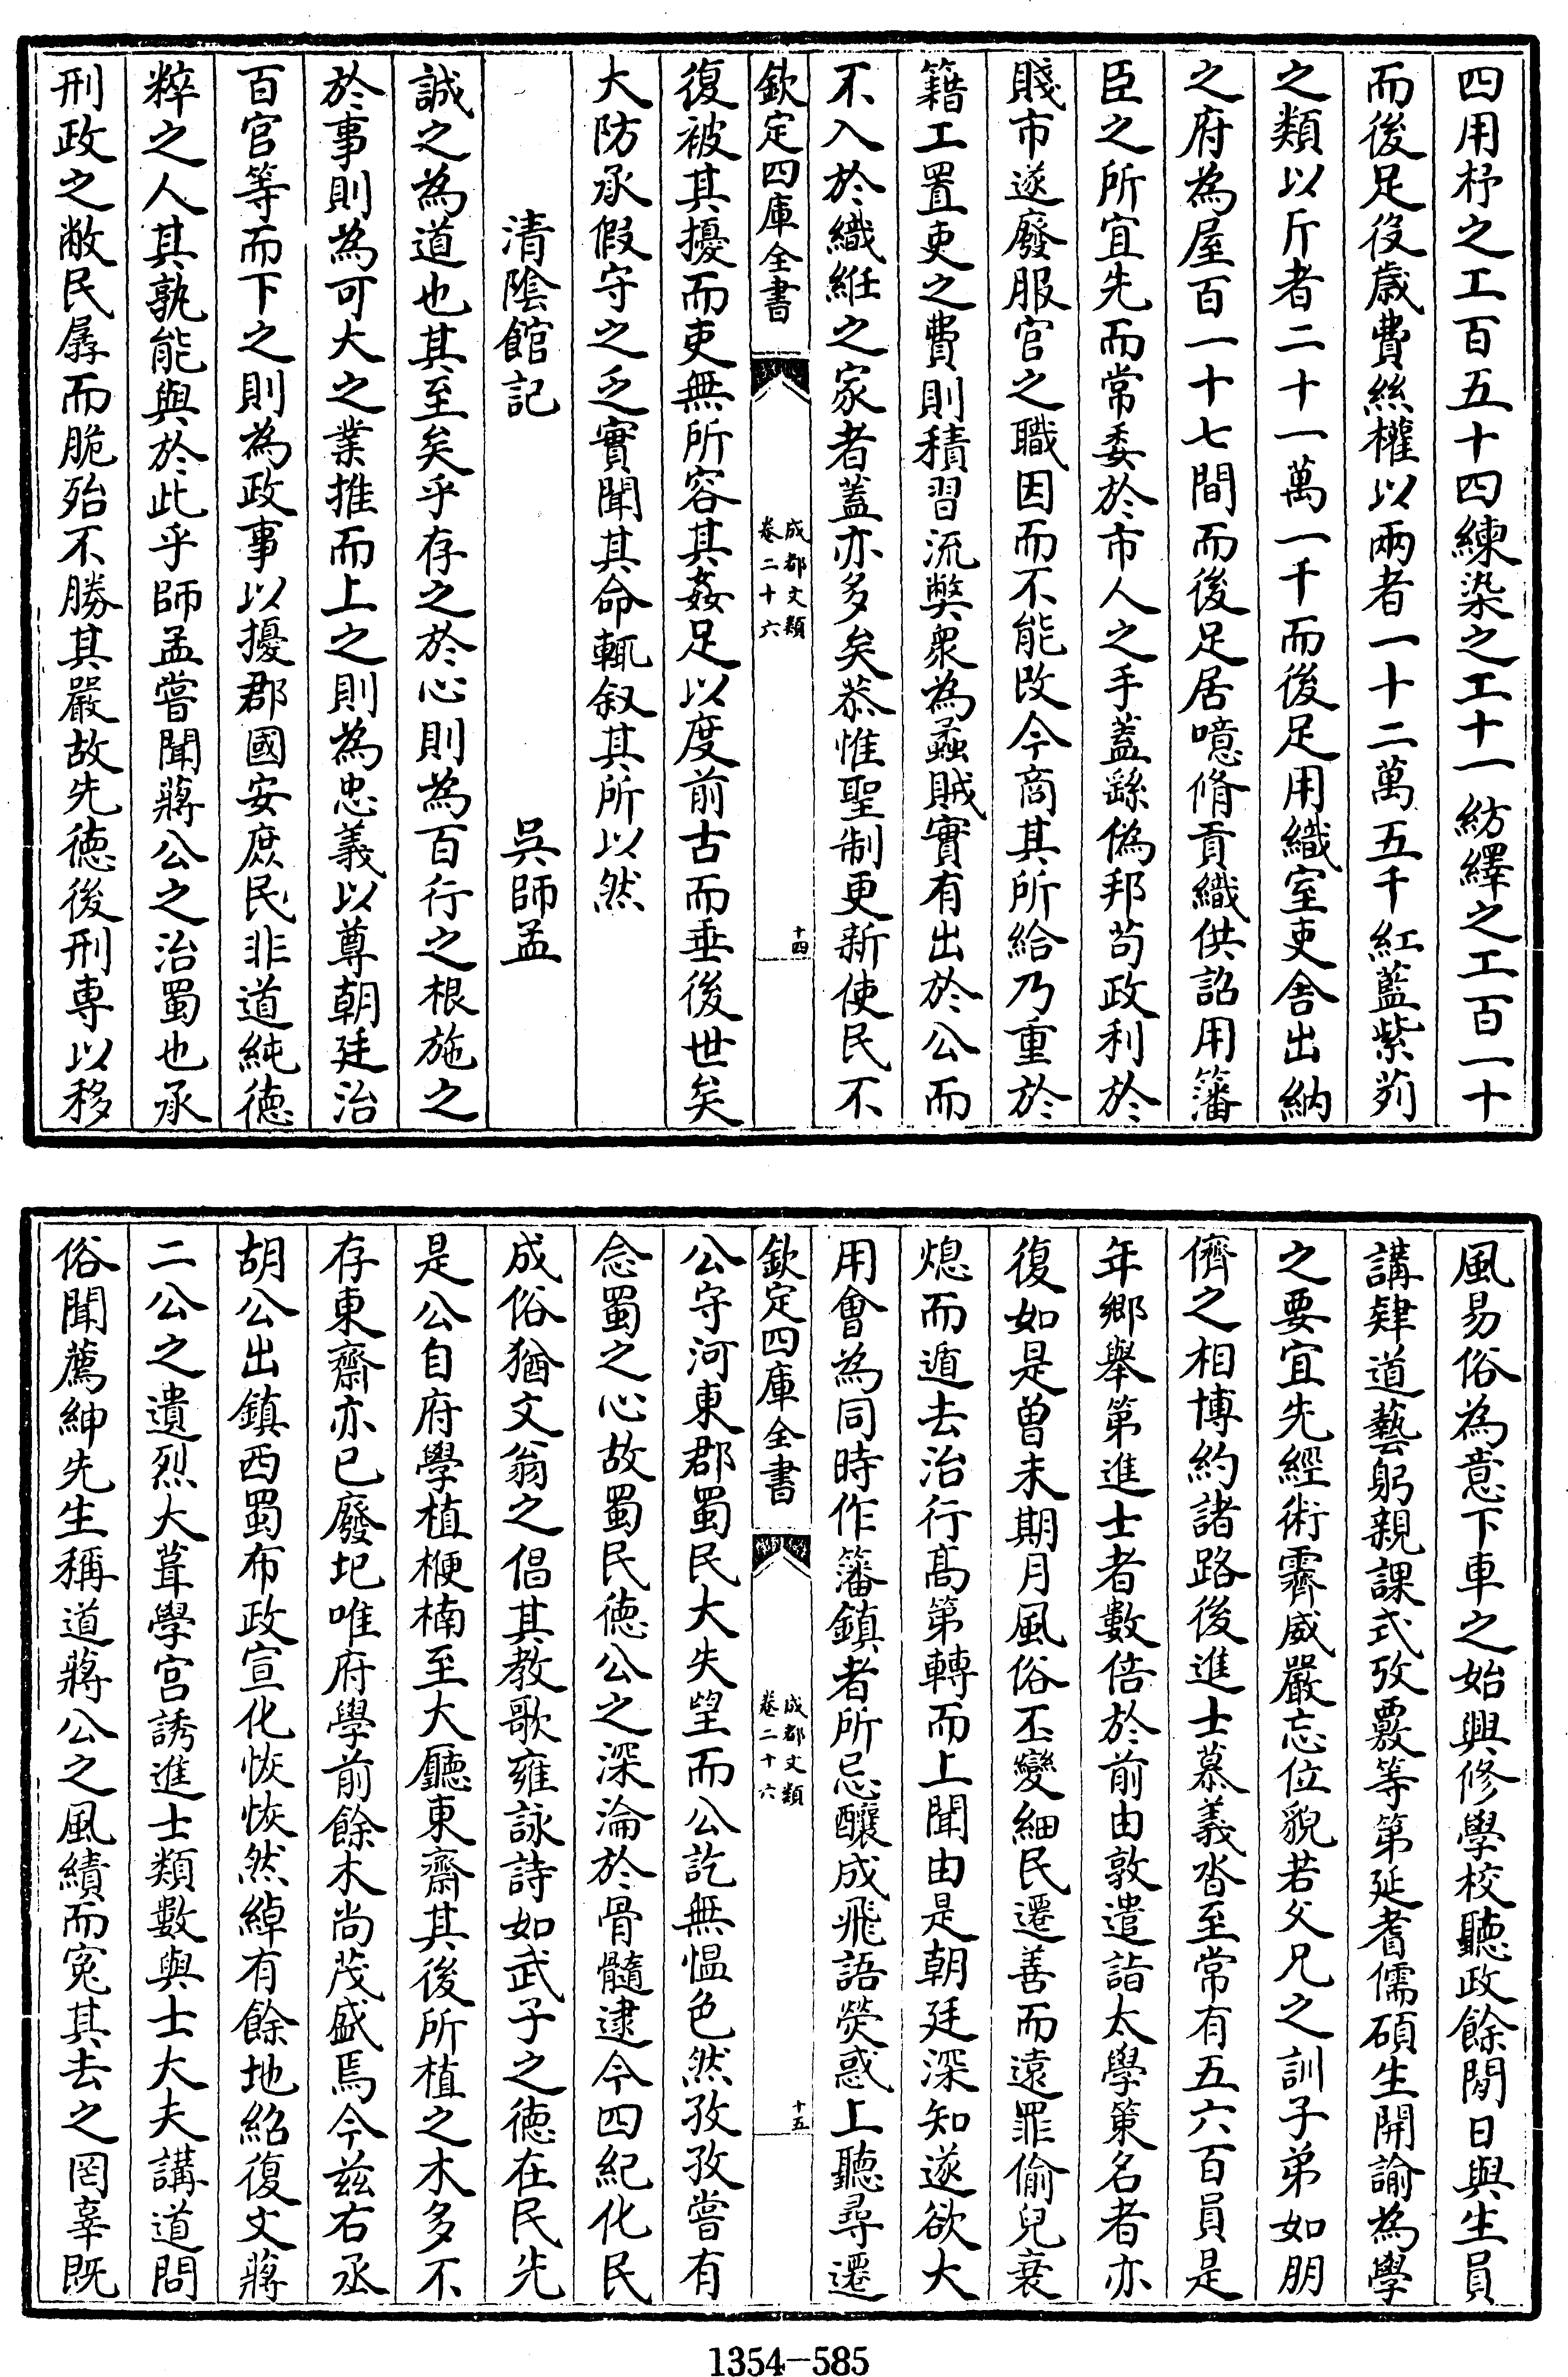 四用杼之工百五十四練染之工十一紡繹之工百一十
而後足役歳費絲權以兩者一十二萬五千紅藍紫茢
之類以斤者二十一萬一千而後足用織室吏舎出納
之府為屋百一十七間而後足居噫脩貢織供詔用籓
臣之所宜先而常委於市人之手蓋繇偽邦茍政利於
賤市遂廢服官之職因而不能改今商其所給乃重於
籍工置吏之費則積習流弊衆為蟊賊實有出於公而
不入於織絍之家者蓋亦多矣恭惟聖制更新使民不
欽定四庫全書
成都文類
卷二十六
十四
復被其擾而吏無所容其姦足以度前古而垂後世矣
大防承假守之乏實聞其命輒叙其所以然
清陰館記
吳師孟
誠之為道也其至矣乎存之於心則為百行之根施之
於事則為可大之業推而上之則為忠義以尊朝廷治
百官等而下之則為政事以擾郡國安庶民非道純徳
粹之人其孰能與於此乎師孟嘗聞蔣公之治蜀也承
刑政之敝民孱而脆殆不勝其嚴故先徳後刑専以移
風易俗為意下車之始興修學校聽政餘閒日與生員
講肄道藝躬親課式攷覈等第延耆儒碩生開諭為學
之要宜先經術霽威嚴忘位貌若父兄之訓子弟如朋
儕之相博約諸路後進士慕義沓至常有五六百員是
年鄉舉第進士者數倍於前由敦遣詣太學第名者亦
復如是曽未期月風俗丕變細民遷善而遠罪偷兒衰
熄而遁去治行髙第轉而上聞由是朝廷深知遂欲大
用會為同時作籓鎮者所忌釀成飛語熒惑上聽尋遷
欽定四庫全書
成都文類
卷二十六
十五
公守河東郡蜀民大失望而公訖無愠色然孜孜嘗有
念蜀之心故蜀民徳公之深淪於骨髓逮今四紀化民
成俗猶文翁之倡其教歌雍詠詩如武子之徳在民先
是公自府學植楩楠至大廳東齋其後所植之木多不
存東齋亦已廢圯唯府學前餘木尚茂盛焉今兹右丞
胡公出鎮西蜀布政宣化恢恢然綽有餘地紹復文蔣
二公之遺烈大葺學宫誘進士類數與士大夫講道問
俗聞薦紳先生稱道蔣公之風績而寃其去之罔辜既
1354-585